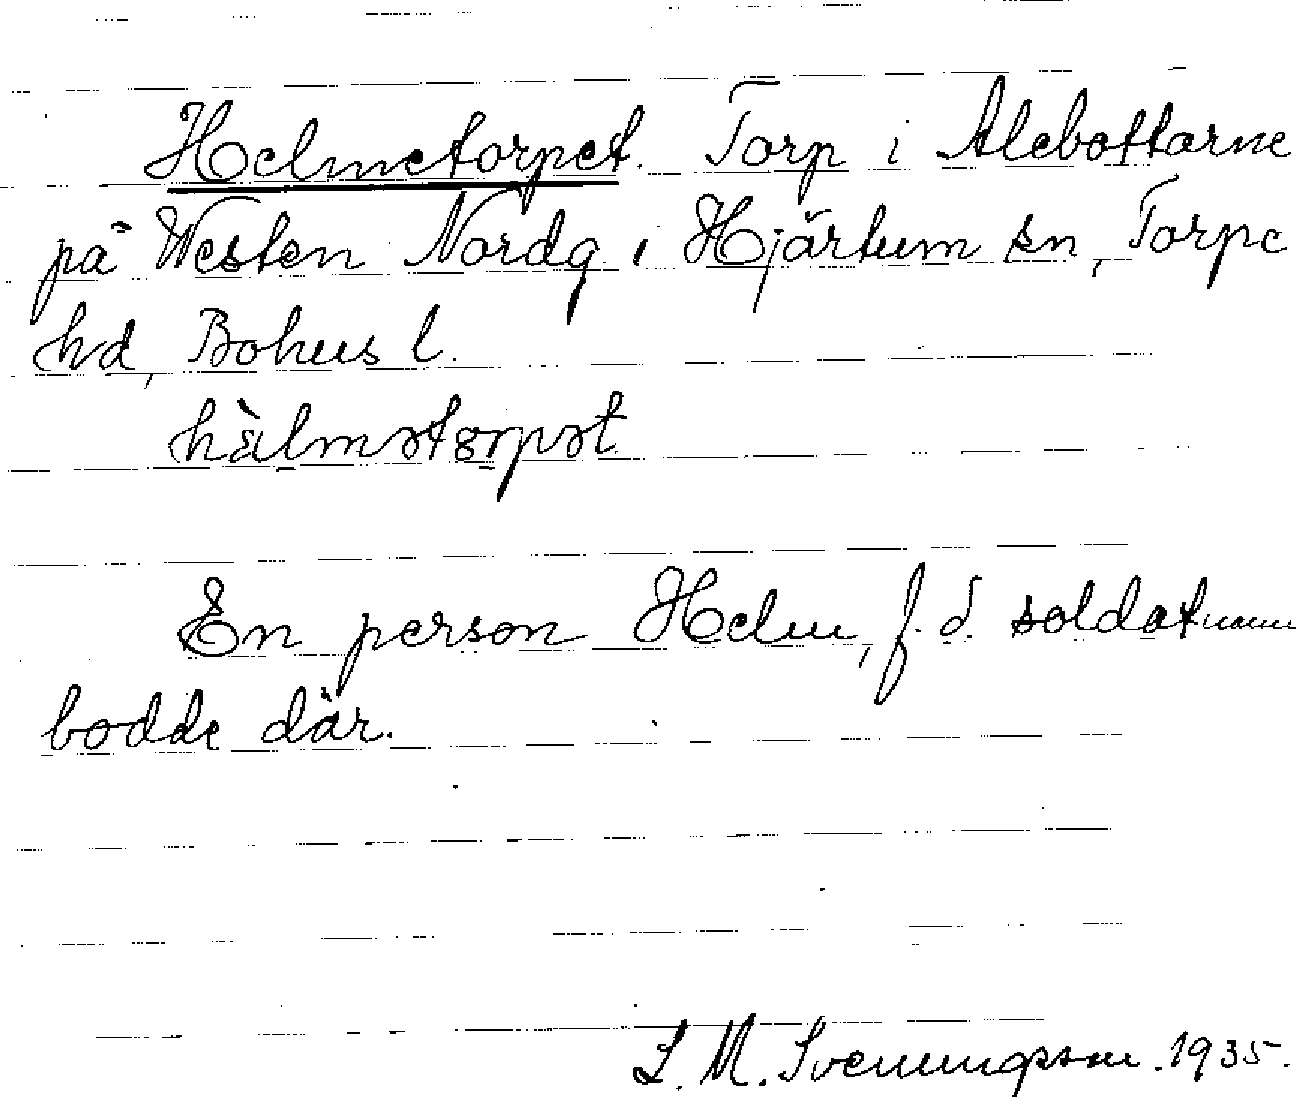 Helmetorpet. Torp i Alebottarne
på Westen Nordg i Hjärtum sn, Torpe
hd, Bohus l.
hàlmətorpət
En person Helm, f. d. soldat
bodde där.
S. M. Svenningsson. 1935.